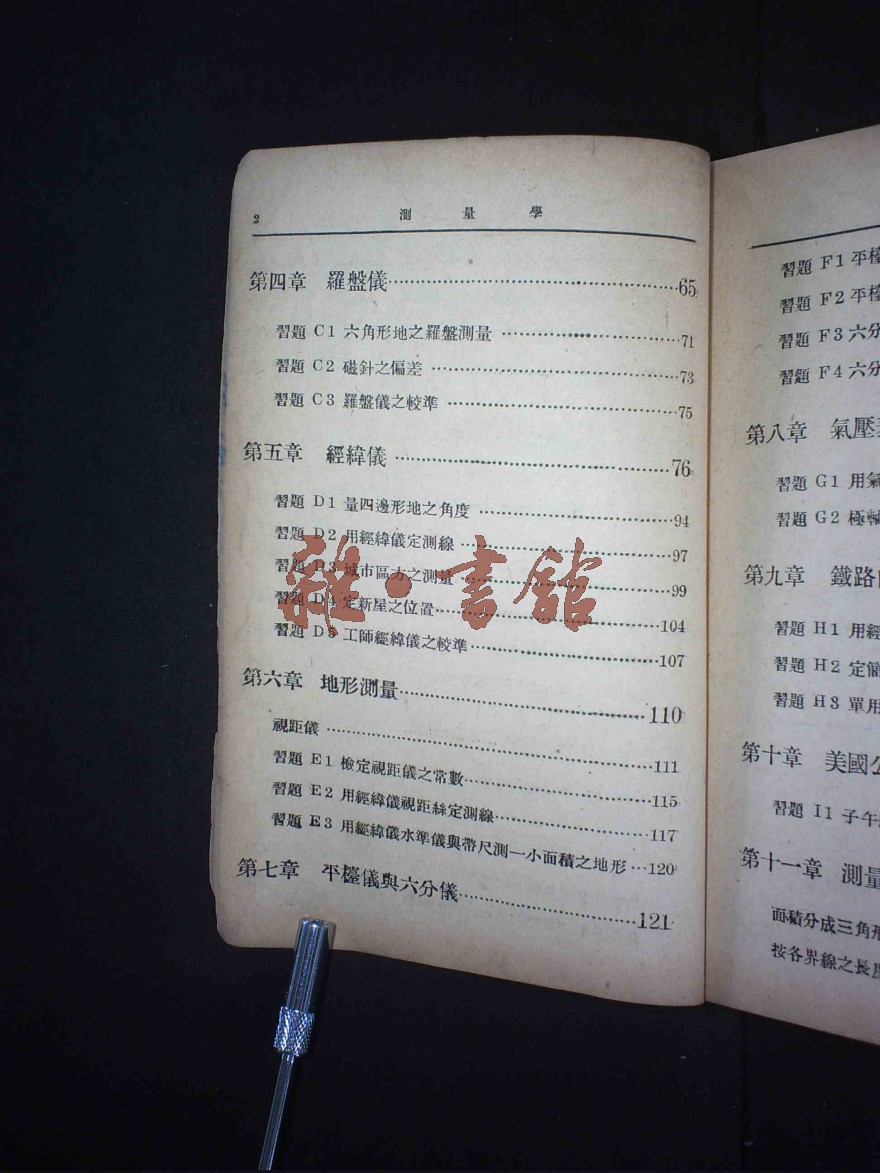 2 測 量 學
第四章 羅盤儀……65
習題 C1 六角形地之羅盤測量……71
習題 C2 磁針之偏差……73
習題 C3 羅盤儀之較準……75
第五章 經緯儀……76
習題 D1 量四邊形地之角度……94
習題 D2 用經緯儀定測線……97
習題 D3 城市區方之測量……99
習題 D4 定新屋之位置……104
習題 D5 工師經緯儀之較準……107
第六章 地形測量……110
視距儀……111
習題 E1 檢定視距儀之常數……115
習題 E2 用經緯儀視距絲定測線……117
習題 E3 用經緯儀水準儀與帶尺測一小面積之地形…120
第七章 平檯儀與六分儀……121
雜·書館
習題 F1 平檯
習題 F2 平檯
習題 F3 六分
習題 F4 六分
第八章 氣壓
習題 G1 用氣
習題 G2 極軸
第九章 鐵路
習題 H1 用經
習題 H2 定
習題 H3 單用
第十章 美國公
習題 I1 子午
第十一章 測量
面積分成三角形
按各界線之長度